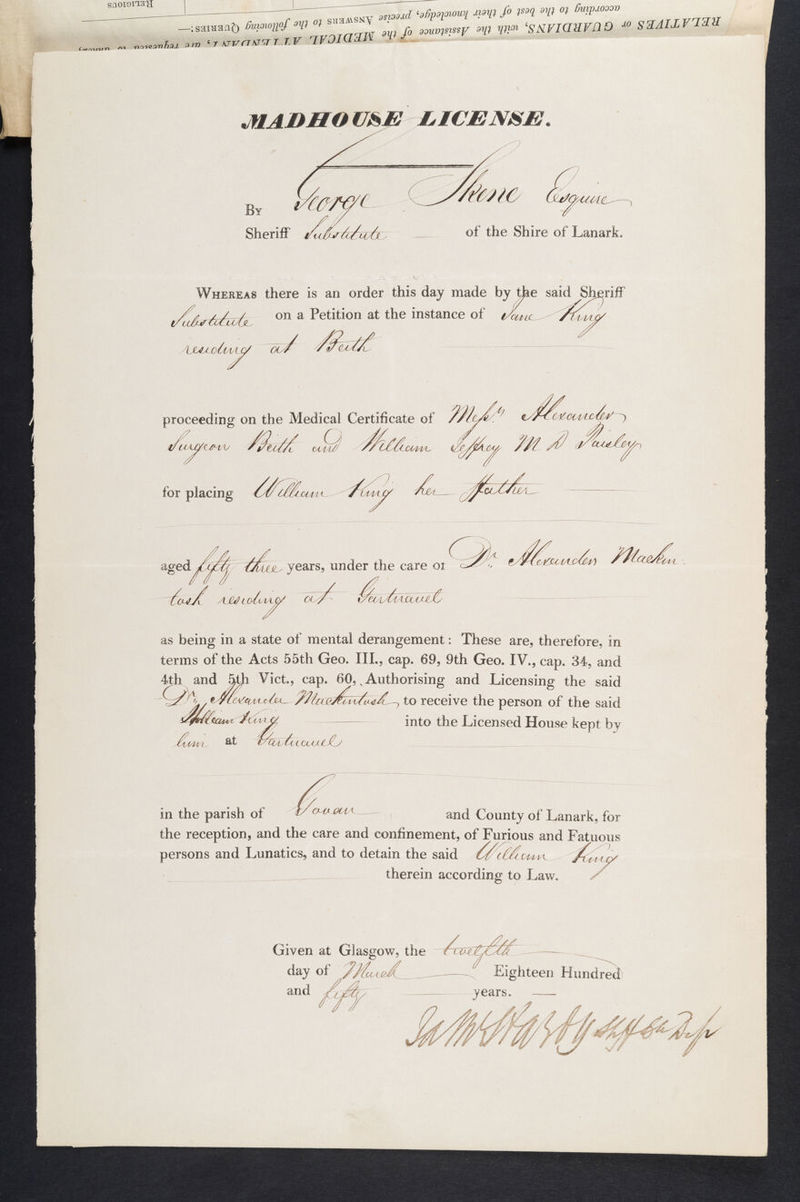 RELIGIOUS
RELATIVES or GUARDIANS, with the Assistance of the MEDICAL ATTENDANT, are requested to
according to the best of their knowledge, precise Answers to the following Queries:—
MADHOUSE LICENSE.
By George Skene Esquire
Sheriff Substitute of the Shire of Lanark.
Whereas there is an order this day made by the said Sheriff
Substitute on a Petition at the instance of Jane King
residing at Beith
proceeding on the Medical Certificate of Messrs Alexander
Surgeon Beith and William Jeffrey M D Paisley
for placing William King her Father
aged fifty three years, under the care of Dr. Alexander Mackin
tosh residing at Gartnavel
as being in a state of mental derangement: These are, therefore, in
terms of the Acts 55th Geo. III., cap. 69, 9th Geo. IV., cap. 34, and
4th and 5th Vict., cap. 60, Authorising and Licensing the said
Dr. Alexander Mackintosh, to receive the person of the said
William King into the Licensed House kept by
him at Gartnavel
in the parish of Govan and County of Lanark, for
the reception, and the care and confinement, of Furious and Fatuous
persons and Lunatics, and to detain the said William King
therein according to Law.
Given at Glasgow, the twelfth
day of March Eighteen Hundred
and fifty years.